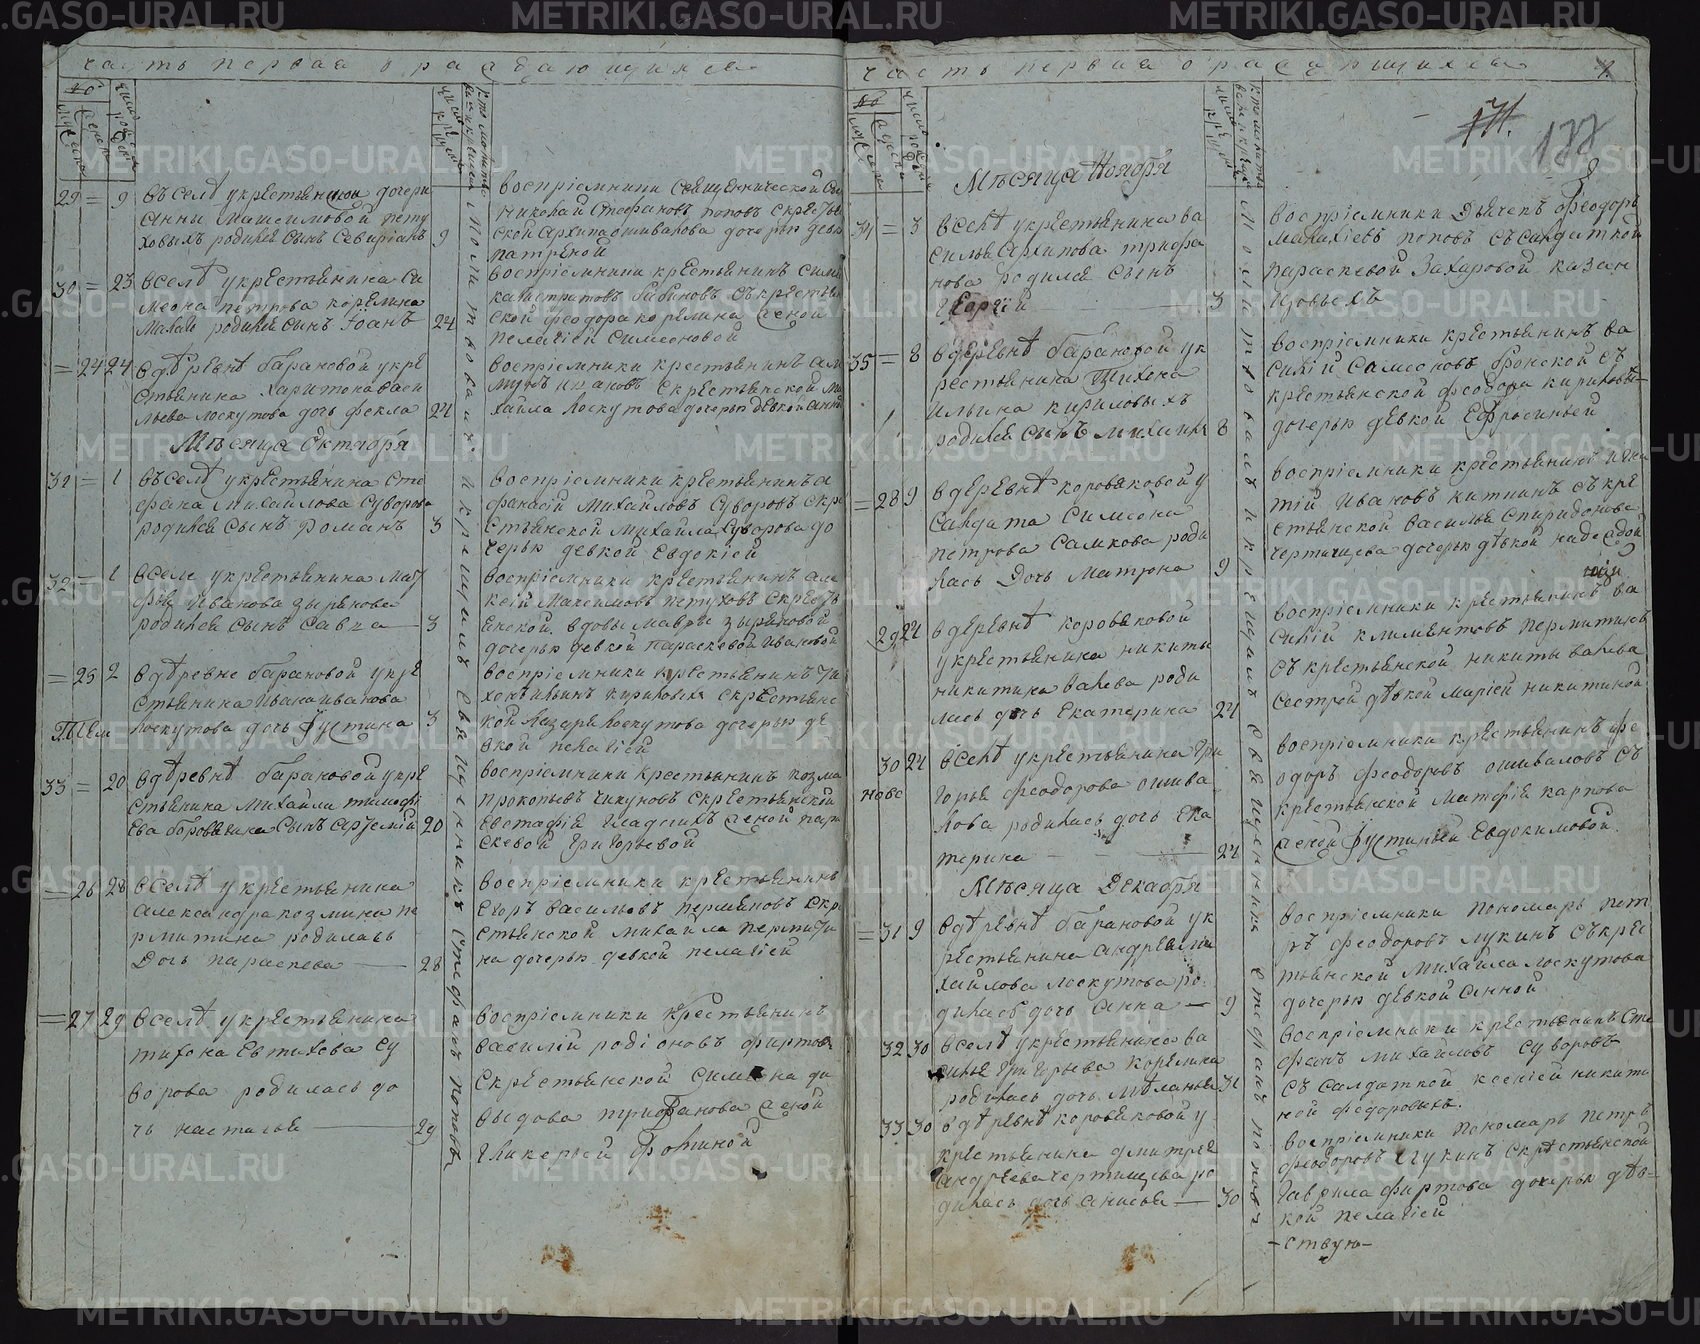 часть первая о раждающихся
29 = 9 въ селѣ у крестьянской дочери
Анны Максимовой пету
ховыхъ родился сынъ Севиріанъ 9
воспріемники священнической сынъ
Николай Стефановъ поповъ с крестьян
ской Архипа ошивалова дочерью девкой
патреной
30 = 23 в селѣ у крестьянина Си
меона петрова корелина
Малой родился сынъ Іоанъ 24
воспріемники крестьянинъ симе
Калистратовъ Бабиновъ съ крестьян
ской феодора корелина женой
пелагіей Симеоновой
= 24 24 в деревнѣ барановой у кре
стьянина Харитона васи
льева лоскутова дочь фекла 24
воспріемники крестьянинъ
Ивановъ с крестьянской Ми
хайла лоскутова дочерью девкой
Мѣсяца Октября
31 = 1 въ селѣ у крестьянина сте
фана михайлова суворова
родился сынъ романъ 3
воспріемники крестьянинъ а
фанасій михайловъ суворовъ с кре
стьянской михайла суворова до
черью девкой евдокіей
32 = 1 в селе у крестьянина мат
фея иванова зырянова
родился сынъ савва 3
воспріемники крестьянинъ але
ксій Максимовъ петуховъ с кресть
янской вдовы мавры зыряновой
дочерью девкой параскевой ивановой
= 25 2 в деревне барановой у кре
стьянина ивана иванова
лоскутова дочь Іустина 3
воспріемники крестьянинъ ти
хонъ ильинъ кириловыхъ с крестьянс
кой лазаря лоскутова дочерью де
вкой пелагіей
33 = 20 в деревнѣ барановой у кре
стьянина михайла тимофе
ева боровягина сынъ артемій 20
воспріемники крестьянинъ козма
прокопьевъ чикуновъ с крестьянской
евстафія гладкихъ женой пара
скевой григорьевой
= 26 28 в селѣ у крестьянина
александра козмина пе
рмитина родилась
дочь параскева 28
воспріемники крестьянинъ
егоръ васильевъ пермяковъ с кре
стьянской михайла пермити
на дочерью девкой пелагіей
= 27 29 в селѣ у крестьянина
тихона евтихева су
ворова родилась до
чь настасья 29
воспріемники крестьянинъ
василій родіоновъ фиртовъ
с крестьянской симеона да
выдова трифанова женой
гликерьей фотиной
Молитвовалъ и крещилъ священникъ стефанъ поповъ
часть первая о раждающихся
171.
177
Мѣсяца Ноября
34 = 3 в селѣ у крестьянина ва
силья архипова трифа
нова родился сынъ
Георгій 3
воспріемники дьячекъ феодоръ
Малахіевъ поповъ съ салдаткой
параскевой Захаровой казан
цовыхъ
35 = 8 в деревнѣ барановой у к
рестьянина Тихона
ильина кириловыхъ
родился сынъ михаилъ 8
воспріемники крестьянинъ ва
силій самсоновъ фонской съ
крестьянской феодора кириловы
дочерью девкой Ефросиньей
= 28 9 в деревнѣ коровяковой у
салдата симеона
петрова самкова роди
лась дочь матрона 9
воспріемники крестьянинъ игна
тій ивановъ киткинъ съ кре
стьянской василья спиридонова
чертищева дочерью дѣвкой надеждой
29 24 в деревнѣ коровяковой
у крестьянина никиты
никитина валева роди
лась дочь екатерина 24
воспріемники крестьянинъ ва
силій климентовъ пермитинъ
съ крестьянской никиты валева
сестрой дѣвкой маріей никитиной
30 24 в селѣ у крестьянина гри
горья феодорова ошива
лова родилась дочь ека
терина 24
воспріемники крестьянинъ фе
одоръ феодоровъ ошиваловъ съ
крестьянской матфія карпова
женой Іустиньей Евдокимовой
Мѣсяца Декабря
= 31 9 в деревнѣ барановой у к
рестьянина андрея ми
хайлова лоскутова ро
дилась дочь анна 9
воспріемники пономарь пет
ръ феодоровъ лукинъ съ крес
тьянской михайла лоскутова
дочерью девкой анной
32 30 в селѣ у крестьянина ва
силья григорьева корелина
родилась дочь меланья 31
воспріемники крестьянинъ сте
фанъ михайловъ суворовъ
съ салдаткой ксеніей никити
ной федоровыхъ.
33 30 в деревнѣ коровяковой у
крестьянина дмитрея
андреева чертищева ро
дилась дочь анисья 30
воспріемники пономарь петръ
феодоровъ лукинъ с крестьянской
гаврила фиртова дочерью дѣв-
кой пелагіей
Молитвовалъ и крещилъ священникъ стефанъ поповъ
- ствую -
METRIKI.GASO-URAL.RU